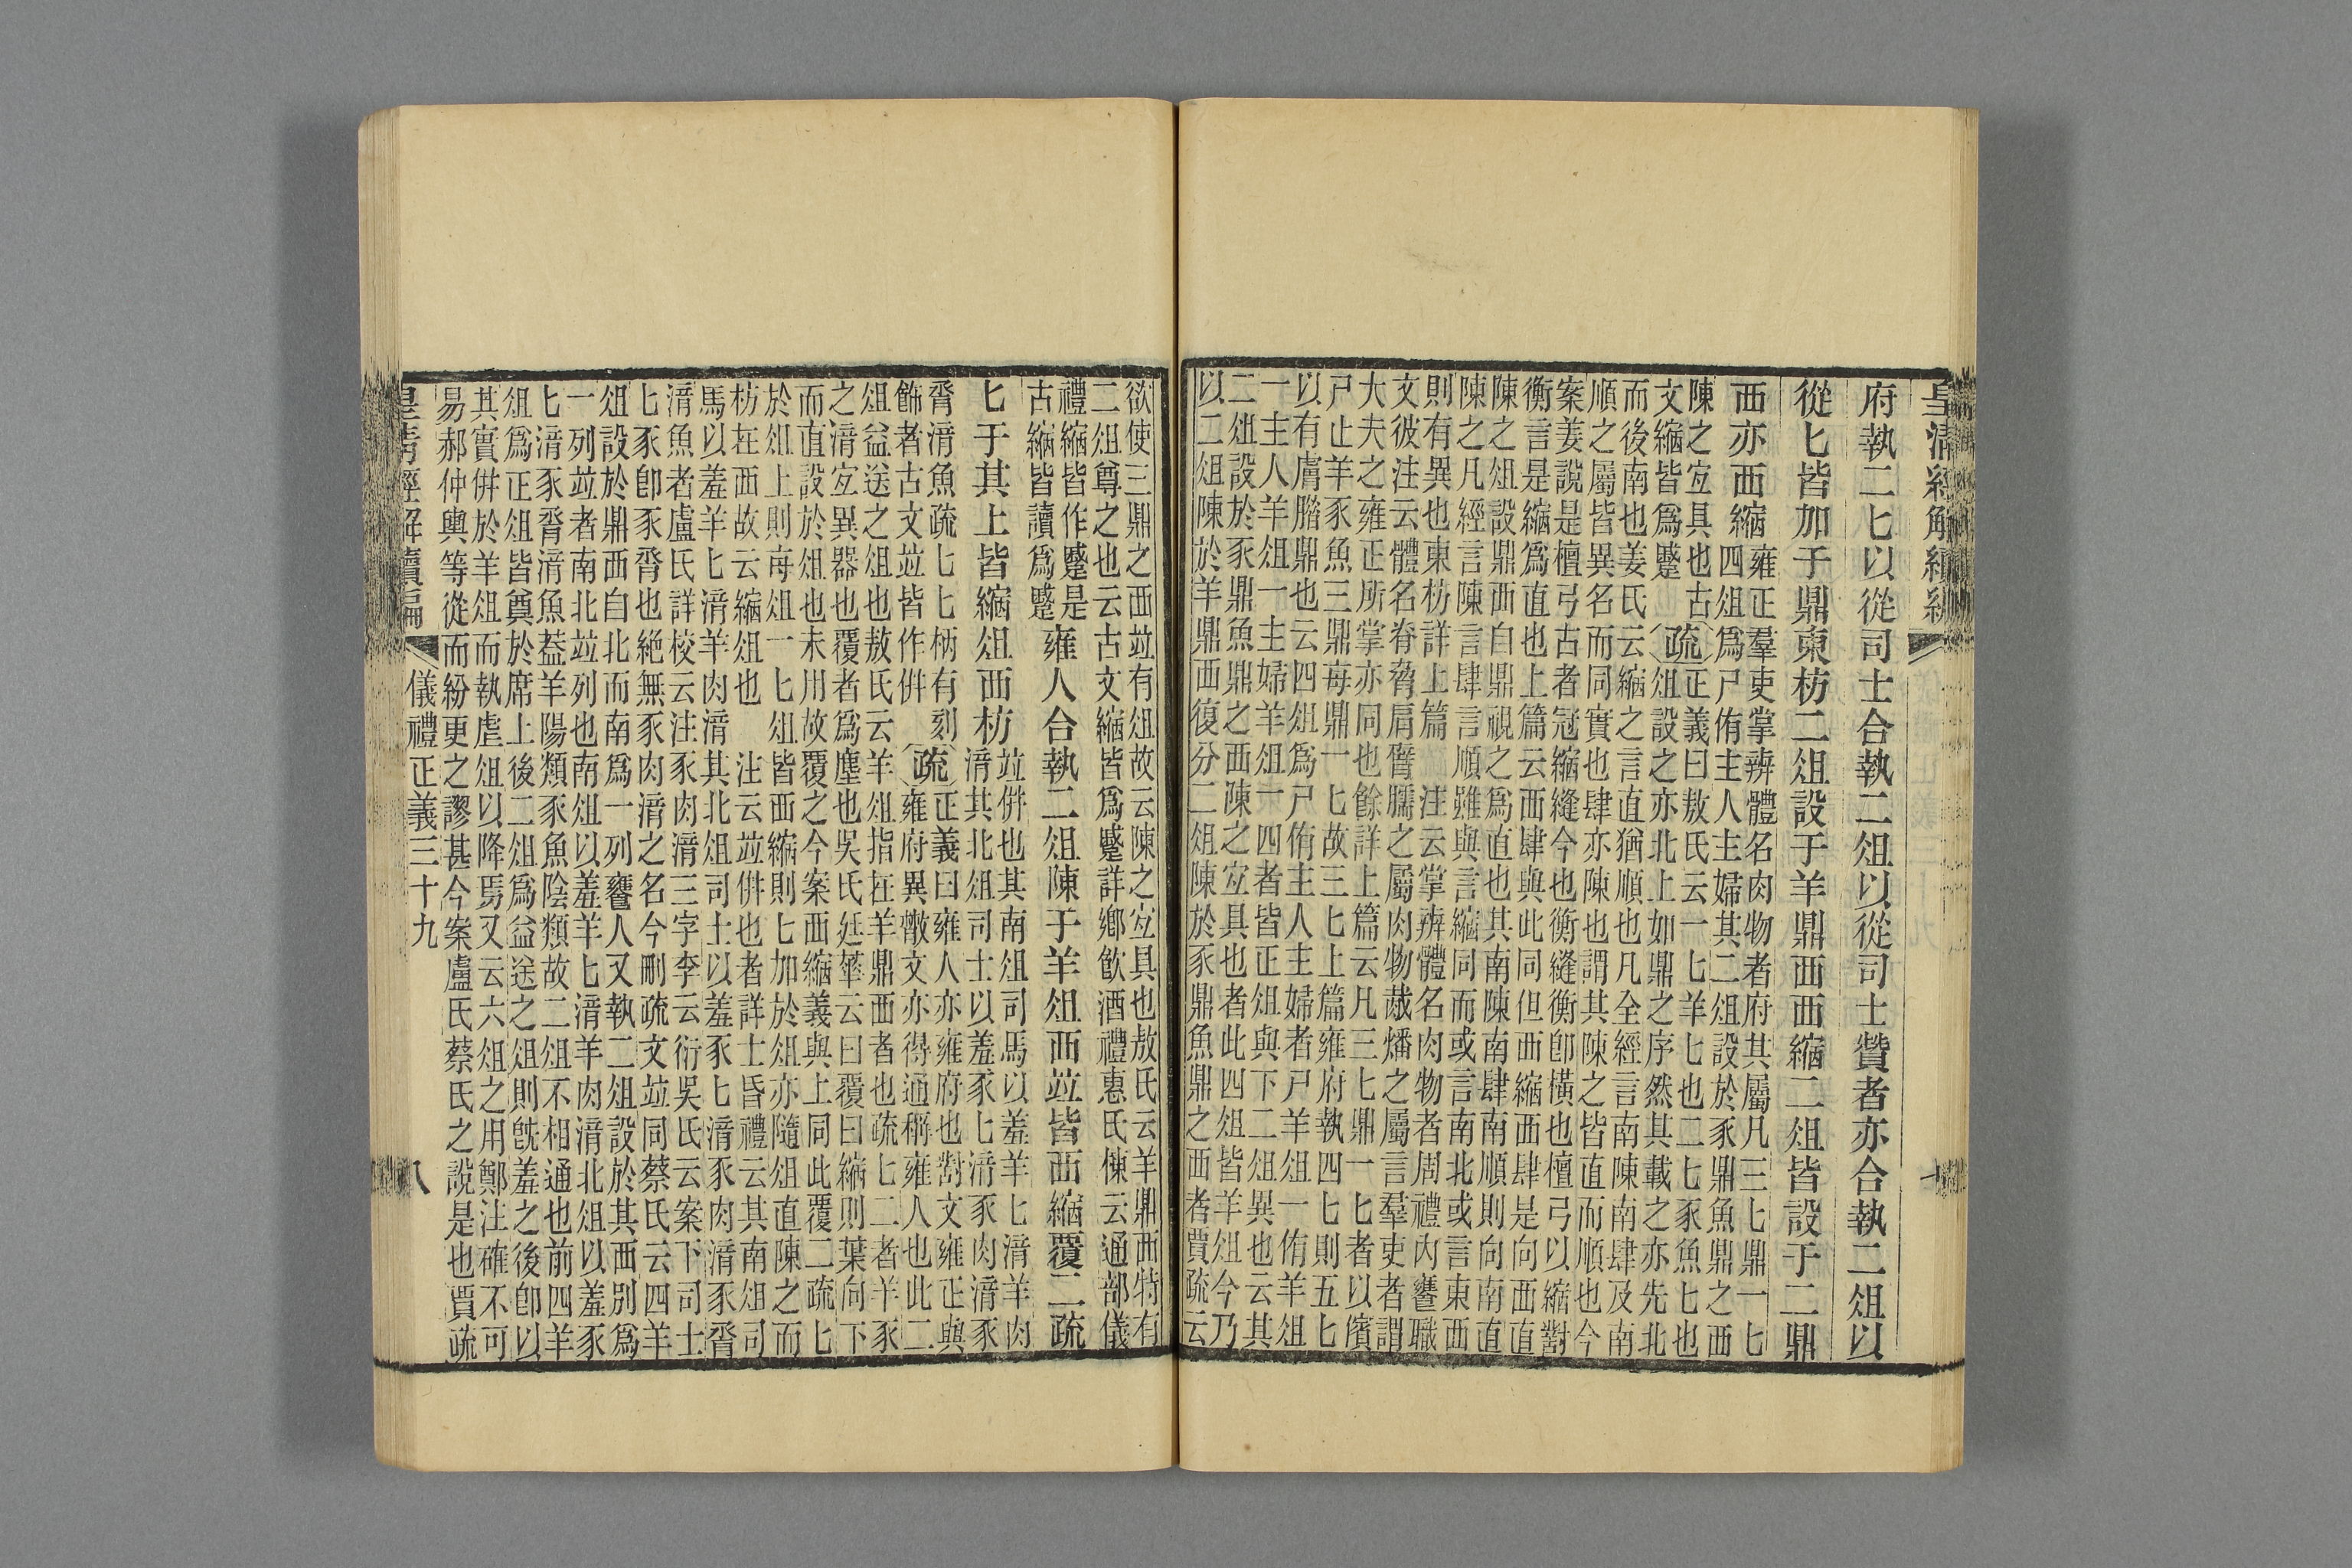 皇清經解續編
府執二匕以從司士合執二俎以從司士贊者亦合執二俎以
從匕皆加于鼎東枋二俎設于羊鼎西西縮二俎皆設于二鼎
西亦西縮
雍正羣吏掌辨體名肉物者府其屬凡三匕鼎一匕
四俎爲尸侑主人主婦其二俎設於豕鼎魚鼎之西
陳之宐具也古
文縮皆爲蹙
疏
正義曰敖氏云一匕羊匕也二匕豕魚匕也
俎設之亦北上如鼎之序然其載之亦先北
而後南也姜氏云縮之言直猶順也凡全經言南陳南肆及南
順之屬皆異名而同實也肆亦陳也謂其陳之皆直而順也今
案姜說是檀弓古者冠縮縫今也衡縫衡卽橫也檀弓以縮對
衡言是縮爲直也上篇云西肆與此同但西縮西肆是向西直
陳之俎設鼎西自鼎視之爲直也其南陳南肆南順則向南直
陳之凡經言陳言肆言順雖與言縮同而或言南北或言東西
則有異也東枋詳上篇 注云掌辨體名肉物者周禮內饔職
文彼注云體名脊脅肩臂臑之屬肉物胾燔之屬言羣吏者謂
大夫之雍正所掌亦同也餘詳上篇云凡三匕鼎一匕者以儐
尸止羊豕魚三鼎每鼎一匕故三匕上篇雍府執四匕則五匕
以有膚腊鼎也云四俎爲尸侑主人主婦者尸羊俎一侑羊俎
一主人羊俎一主婦羊俎一四者皆正俎與下二俎異也云其
二俎設於豕鼎魚鼎之西陳之宐具也者此四俎皆羊俎今乃
以二俎陳於羊鼎西復分二俎陳於豕鼎魚鼎之西者賈疏云
欲使三鼎之西竝有俎故云陳之宐具也敖氏云羊鼎西特有
二俎尊之也云古文縮皆爲蹙詳鄉飮酒禮惠氏棟云通部儀
禮縮皆作蹙是
古縮皆讀爲蹙
雍人合執二俎陳于羊俎西竝皆西縮覆二疏
匕于其上皆縮俎西枋
竝併也其南俎司馬以羞羊匕湆羊肉
湆其北俎司士以羞豕匕湆豕肉湆豕
脀湆魚疏匕匕柄有刻
飾者古文竝皆作併
疏
正義曰雍人亦雍府也對文雍正與
雍府異散文亦得通稱雍人也此二
俎益送之俎也敖氏云羊俎指在羊鼎西者也疏匕二者羊豕
之湆宐異器也覆者爲塵也吳氏廷華云曰覆曰縮則葉向下
而直設於俎也未用故覆之今案西縮義與上同此覆二疏匕
於俎上則每俎一匕俎皆西縮則匕加於俎亦隨俎直陳之而
枋在西故云縮俎也 注云竝併也者詳士昏禮云其南俎司
馬以羞羊匕湆羊肉湆其北俎司士以羞豕匕湆豕肉湆豕脀
湆魚者盧氏詳校云注豕肉湆三字李云衍吳氏云案下司士
匕豕卽豕脀也絕無豕肉湆之名今刪疏文竝同蔡氏云四羊
俎設於鼎西自北而南爲一列饔人又執二俎設於其西別爲
一列竝者南北竝列也南俎以羞羊匕湆羊肉湆北俎以羞豕
匕湆豕脀湆魚蓋羊陽類豕魚陰類故二俎不相通也前四羊
俎爲正俎皆奠於席上後二俎爲益送之俎則旣羞之後卽以
其實併於羊俎而執虗俎以降焉又云六俎之用鄭注確不可
易郝仲輿等從而紛更之謬甚今案盧氏蔡氏之說是也賈疏
皇清經解續編 儀禮正義三十九 八